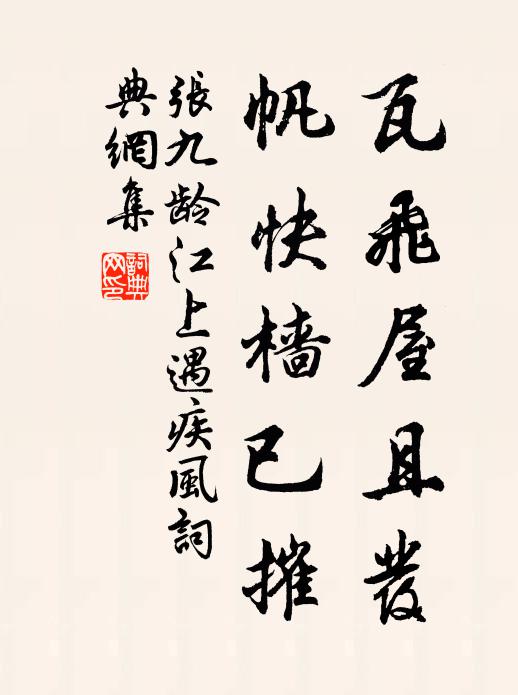 瓦飛屋且發
帆快檣已摧
張九龄江上遇疾風詞
典網集
詞典網印